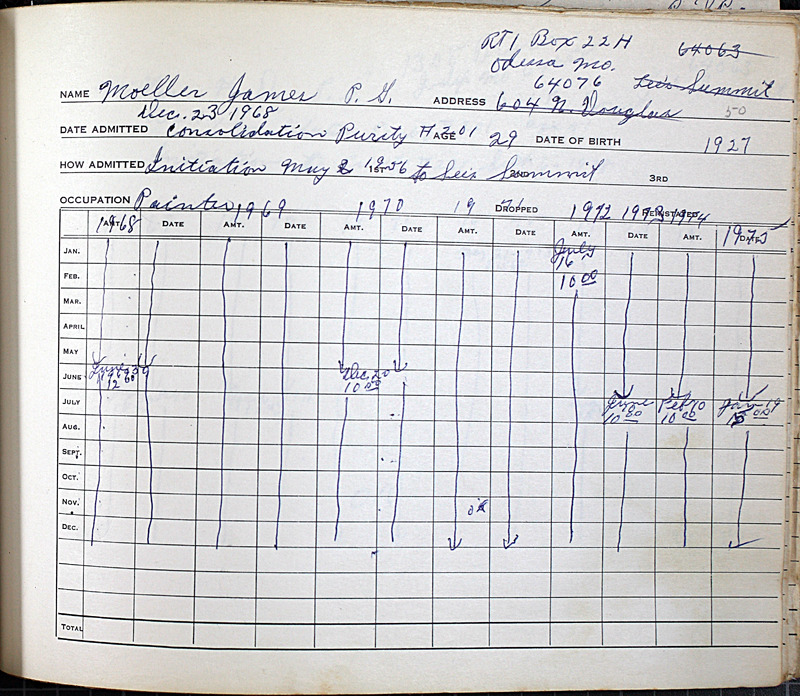 RT 1 Box 22H 64063
Odessa Mo.
64076 Lee's Summit
NAME Moeller James P. G. ADDRESS 604 N. Douglas 50
Dec. 23 1968
DATE ADMITTED Consolidation Purity # 201 AGE 29 DATE OF BIRTH 1927
HOW ADMITTED Initiation May 1956 1ST to Lee's Summit 2ND 3RD
OCCUPATION Painter DROPPED REINSTATED
1968 1969 1970 19 71 1972 1973 1974 1975
AMT. DATE AMT. DATE AMT. DATE AMT. DATE AMT. DATE AMT. DATE
JAN. July
FEB. 16
10 00
MAR.
APRIL
MAY
JUNE June Dec. 20
12 00 10 00
JULY June Feb 10 Jan 19
10 00 10 00 15 00
AUG.
SEPT.
OCT.
NOV. ok
DEC.
TOTAL